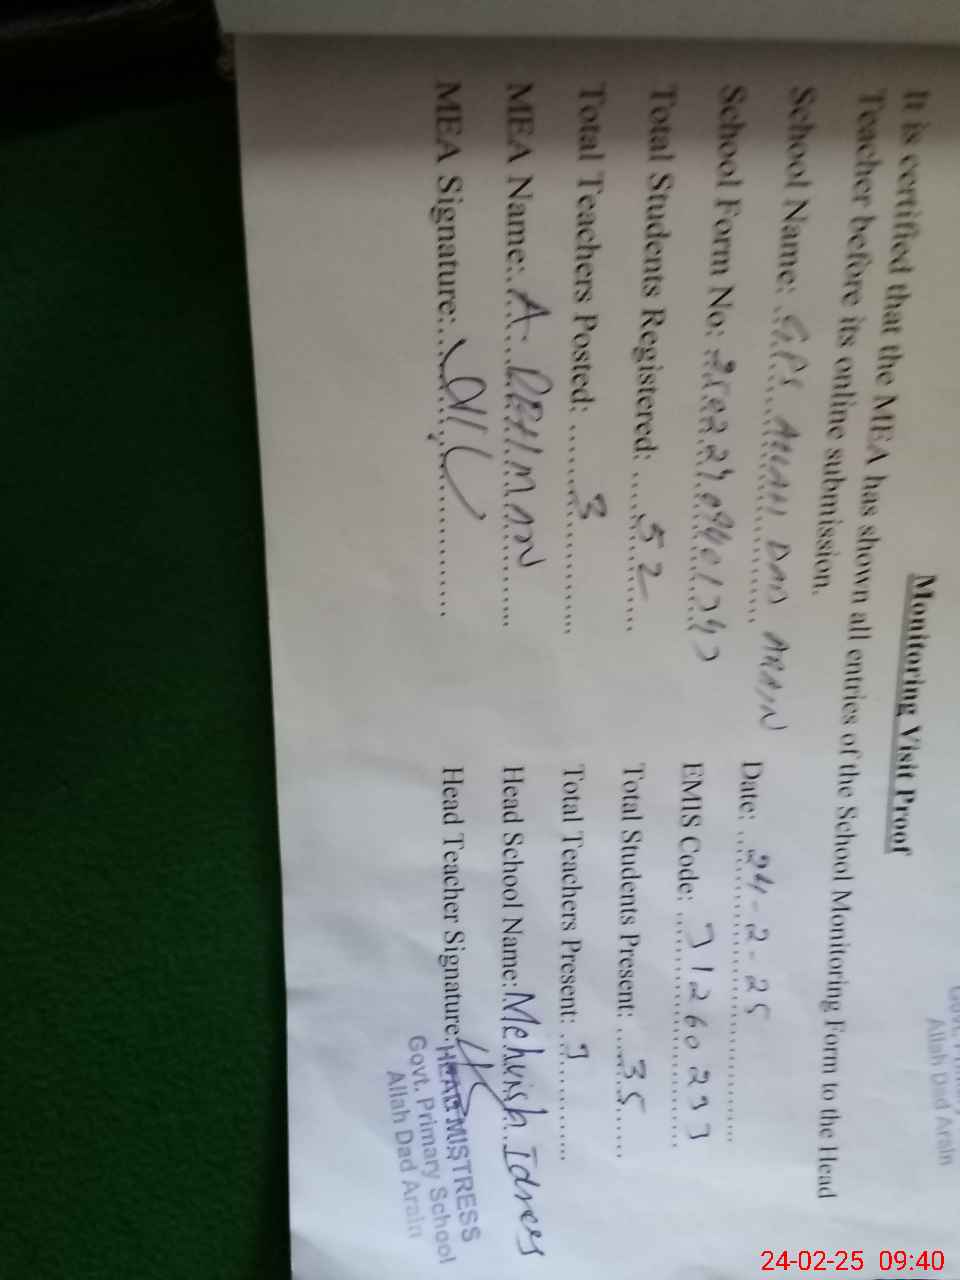 Allah Dad Arain
Monitoring Visit Proof
It is certified that the MEA has shown all entries of the School Monitoring Form to the Head
Teacher before its online submission.
School Name: GPS ALLAH DAD ARAIN Date: 24-2-25
School Form No: EMIS Code:
Total Students Registered: 52 Total Students Present: 35
Total Teachers Posted: 3 Total Teachers Present:
MEA Name: A. REHMAN Head School Name: Mehvish Idrees
MEA Signature: Head Teacher Signature:
HEAD MISTRESS
Govt. Primary School
Allah Dad Arain
24-02-25 09:40